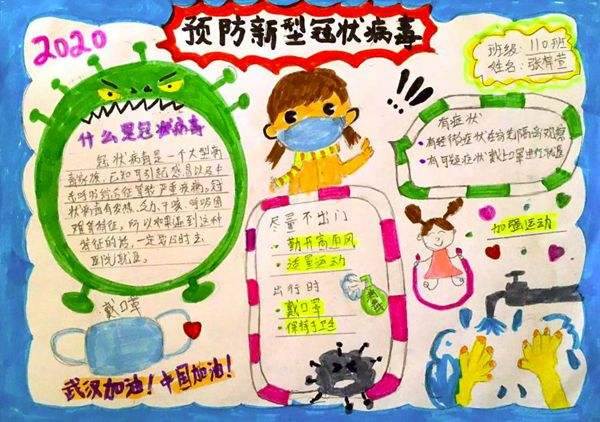 2020
预防新型冠状病毒
班级:110班
姓名:张萱
什么是冠状病毒
冠状病毒是一个大型病
毒家族,已知可引起感冒以及中
东呼吸综合征等较严重疾病。冠
状病毒有发烧、乏力、干咳、呼吸困
难等特征。所以如果遇到这种
特征的话,一定要及时去
医院就医。
!!!
有症状
·有轻微症状在家先隔离观察
·有可疑症状戴上口罩
尽量不出门
·勤开窗通风
·适量运动
出行时
·戴口罩
·保持手卫生
加强运动
戴口罩
武汉加油!中国加油!